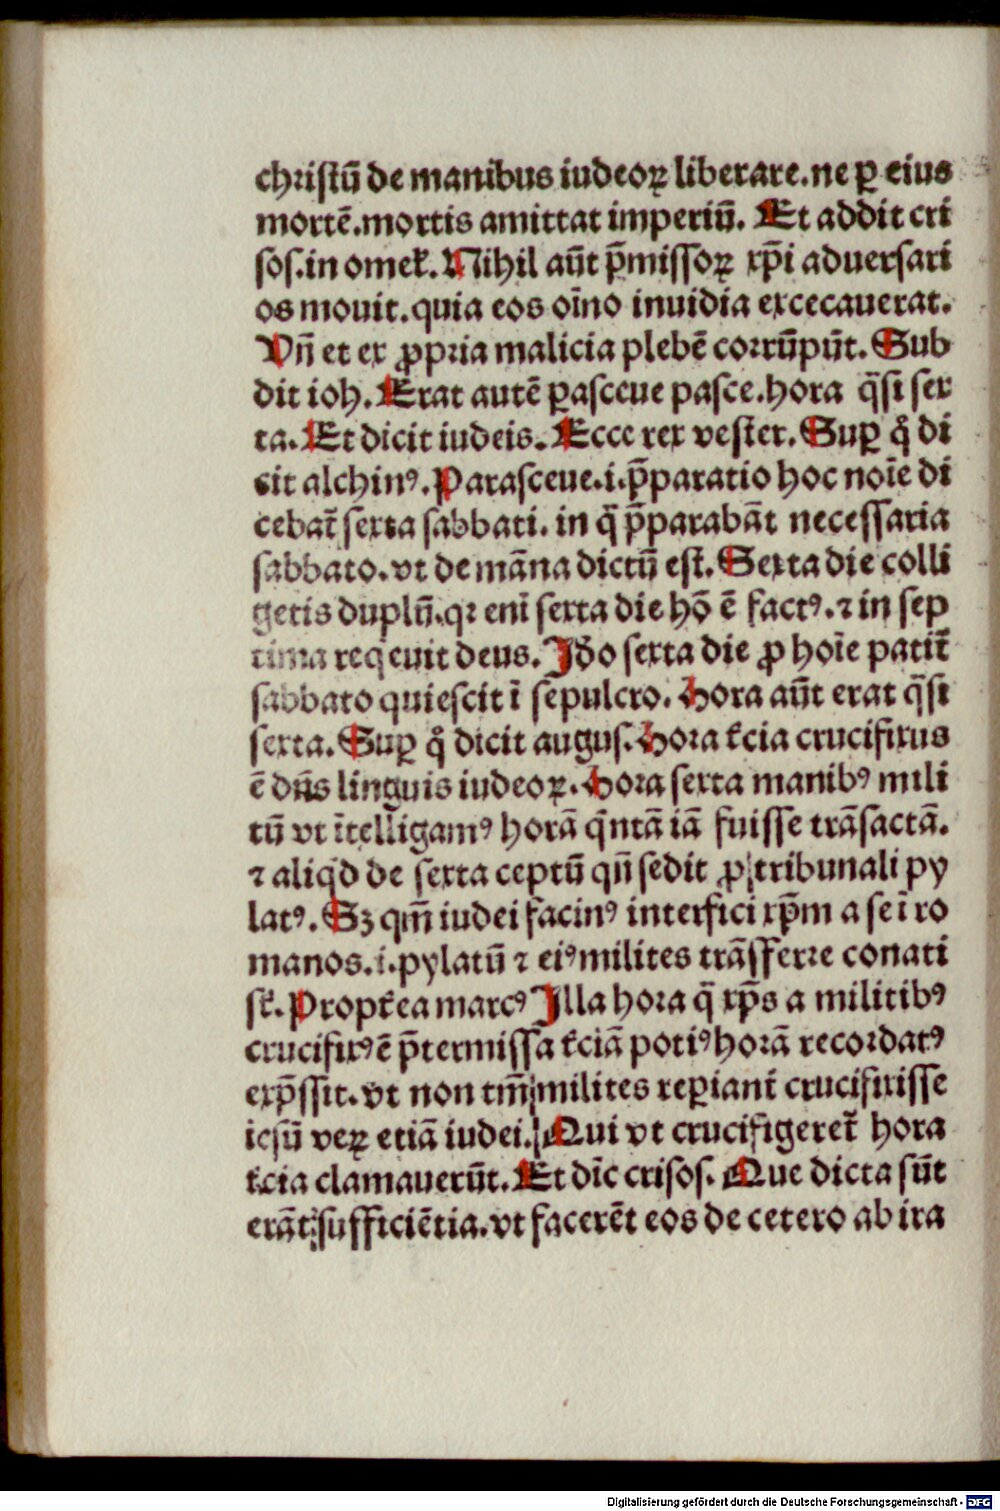 christū de manibus iudeoꝝ liberare.ne ꝑ eius
mortē.mortis amittat imperiū. Et addit cri
sos.in omeł. Nihil aūt p̄missoꝝ xp̄i aduersari
os mouit.quia eos oīno inuidia excecauerat.
Vn̄ et ex ꝓpria malicia plebē corrūpūt. Sub
dit ioh. Erat autē ꝑasceue pasce.hora q̄si sex
ta. Et dicit iudeis. Ecce rex vester. Suꝑ qͦ di
cit alchinꝰ. Parasceue.i.p̄paratio hoc noīe di
cebat̄ sexta sabbati. in q̄ p̄parabāt necessaria
sabbato.vt de māna dictū est. Sexta die colli
getis duplū.qꝛ enī sexta die hō ē factꝰ.⁊ in sep
tima reqeuit deus. Iđo sexta die ꝓ hoīe patit̄
sabbato quiescit ī sepulcro. Hora aūt erat q̄si
sexta. Suꝑ qͦ dicit augus. Hora t̄cia crucifixus
ē dn̄s linguis iudeoꝝ. Hora sexta manibꝰ mili
tū vt ītelligamꝰ horā qⁱntā iā fuisse trāsactā.
⁊ aliqⁱd de sexta ceptū qn̄ sedit ꝓ tribunali py
latꝰ. Sꝫ qm̄ iudei facinꝰ interfici xp̄m a se ī ro
manos.i.pylatū ⁊ eiꝰ milites trāsferre conati
st̄. Propt̄ea marcꝰ Illa hora q̄ xp̄s a militibꝰ
crucifixꝰ ē p̄termissa t̄ciā potiꝰ horā recordatꝰ
exp̄ssit.vt non tm̄ milites reꝑiant̄ crucifixisse
iesū veꝝ etiā iudei. Qui vt crucifigeret̄ hora
t̄cia clamauerūt. Et dīc crisos. Que dicta sūt
erāt sufficiētia.vt facerēt eos de cetero ab ira
Digitalisierung gefördert durch die Deutsche Forschungsgemeinschaft - DFG